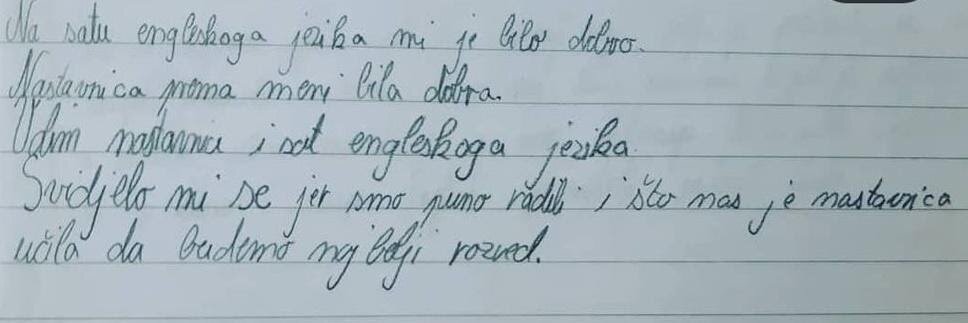 Na satu engleskoga jezika mi je bilo dobro.
Nastavnica prema meni bila dobra.
nastavnicu i sat engleskoga jezika.
Svidjelo mi se jer smo puno radili i što nas je nastavnica
učila da budemo najbolji razred.